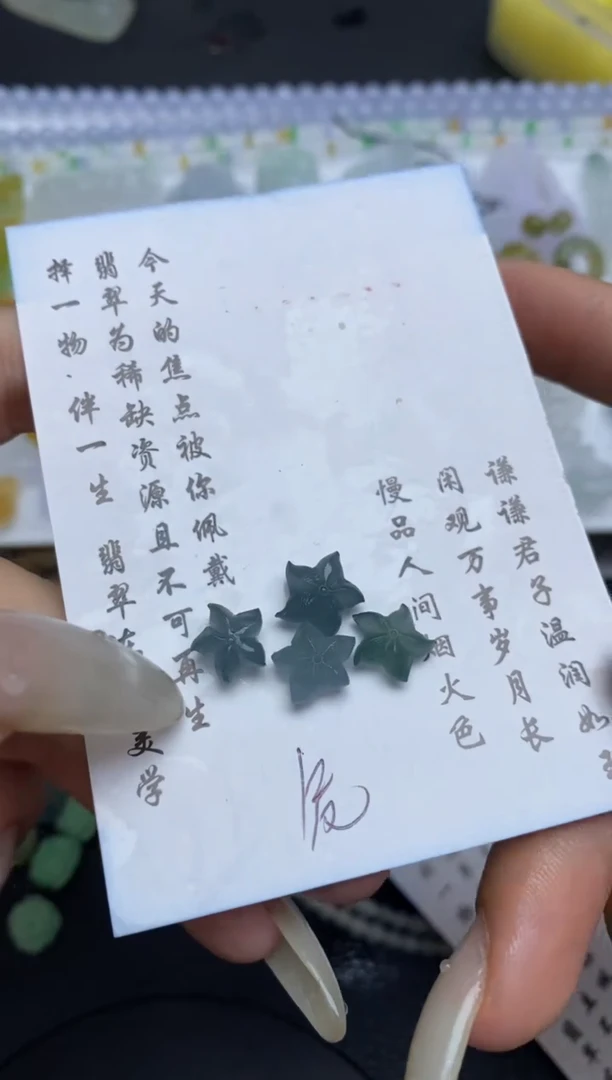 谦谦君子温润如玉
闲观万事岁月长
慢品人间烟火色
今天的焦点被你佩戴
翡翠为稀缺资源且不可再生
择一物、伴一生 翡翠 美学